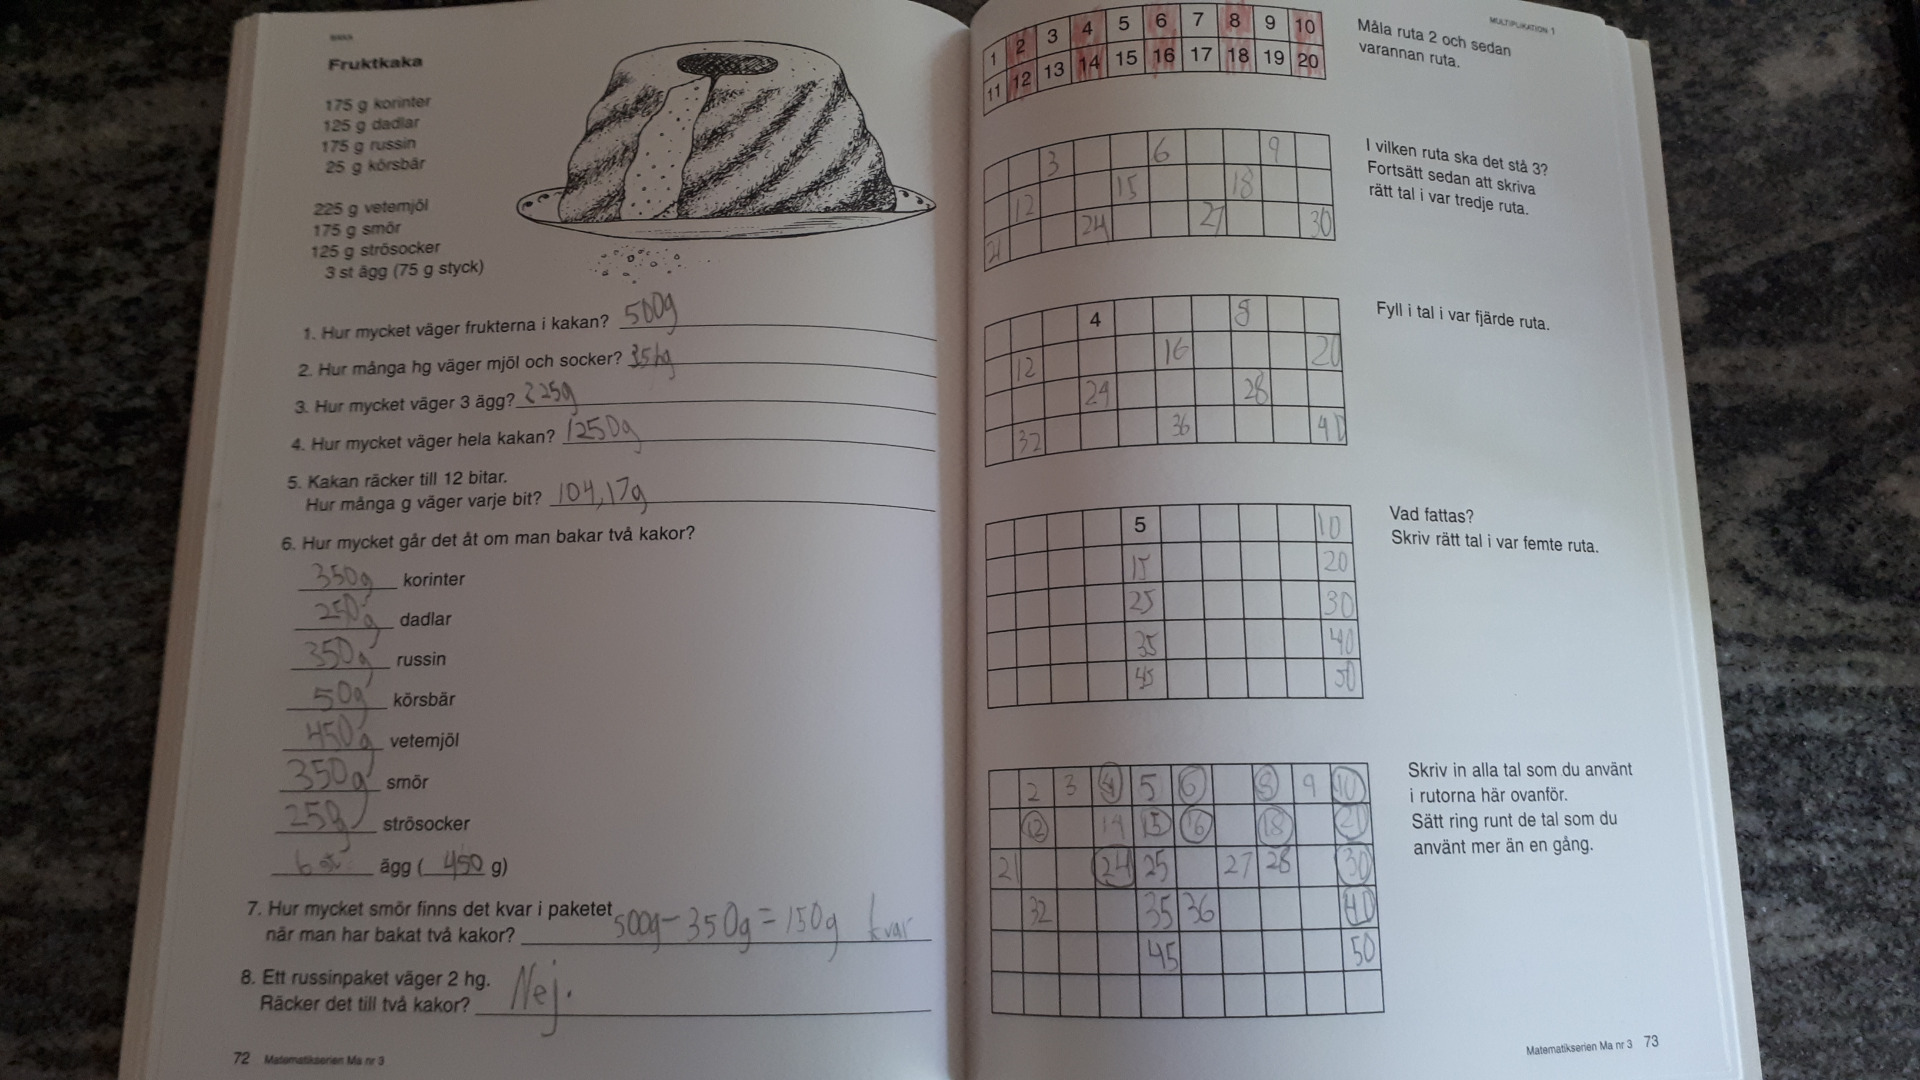 BAKA
Fruktkaka
175 g korinter
125 g dadlar
175 g russin
25 g körsbär
225 g vetemjöl
175 g smör
125 g strösocker
3 st ägg (75 g styck)
1. Hur mycket väger frukterna i kakan? 500g
2. Hur många hg väger mjöl och socker?
3. Hur mycket väger 3 ägg? 225g
4. Hur mycket väger hela kakan? 1250g
5. Kakan räcker till 12 bitar.
Hur många g väger varje bit? 104,17g
6. Hur mycket går det åt om man bakar två kakor?
350g korinter
250g dadlar
350g russin
50g körsbär
450g vetemjöl
350g smör
25g strösocker
6 st ägg (450 g)
7. Hur mycket smör finns det kvar i paketet
när man har bakat två kakor? 500g - 350g = 150g kvar
8. Ett russinpaket väger 2 hg.
Räcker det till två kakor? Nej.
72 Matematikserien Ma nr 3
MULTIPLIKATION 1
1 2 3 4 5 6 7 8 9 10
11 12 13 14 15 16 17 18 19 20
Måla ruta 2 och sedan
varannan ruta.
3 6 9
12 15 18
21 24 27 30
I vilken ruta ska det stå 3?
Fortsätt sedan att skriva
rätt tal i var tredje ruta.
4 8
12 16 20
24 28
32 36 40
Fyll i tal i var fjärde ruta.
5 10
15 20
25 30
35 40
45 50
Vad fattas?
Skriv rätt tal i var femte ruta.
2 3 4 5 6 8 9 10
12 14 15 16 18 20
21 24 25 27 28 30
32 35 36 40
45 50
Skriv in alla tal som du använt
i rutorna här ovanför.
Sätt ring runt de tal som du
använt mer än en gång.
Matematikserien Ma nr 3 73